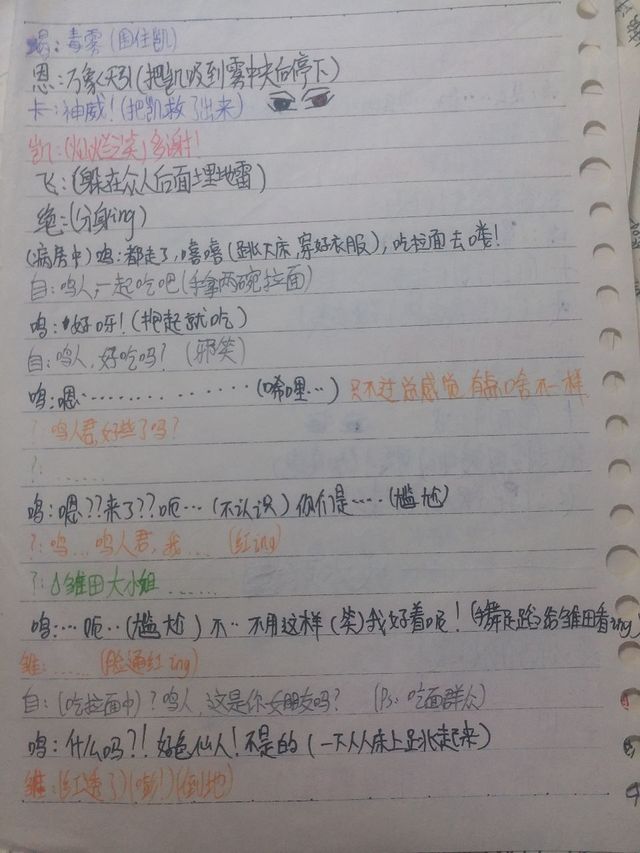 蝎：毒雾（困住凯）
恩：万象天引（把凯吸到雾中央后停下）
卡：神威！（把凯救了出来）
凯：（灿烂笑）多谢！
飞：（躲在众人后面埋地雷）
绝：（分身ing）
（病房中）鸣：都走了，嘻嘻（跳下床，穿好衣服），吃拉面去喽！
自：鸣人，一起吃吧（手拿两碗拉面）
鸣：好呀！（抱起就吃）
自：鸣人，好吃吗？（邪笑）
鸣：嗯……………（唏哩…）只不过总感觉有点啥不一样
？：鸣人君，好些了吗？
？：……
鸣：嗯？？来了？？呃…（不认识）你们是……（尴尬）
？：鸣…鸣人君，我……（红ing）
？：△雏田大小姐……
鸣：…呃…（尴尬）不…不用这样（笑）我好着呢！（手舞足蹈给雏田看ing）
雏：……（脸通红ing）
自：（吃拉面中）？鸣人，这是你女朋友吗？（Ps：吃面群众）
鸣：什么吗？！好色仙人！不是的（一下从床上跳起来）
雏：（红透了）（嘭！）（倒地）